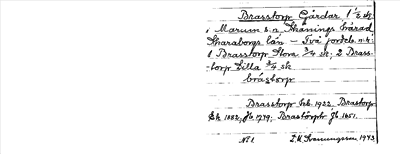 Brasstorp Gårdar 1 1/2 sk
i Marum s:n Skånings härad
Skaraborgs län – Två jordeb. n:r:
1 Brasstorp Stora 3/4 sk; 2 Brass-
torp Lilla 3/4 sk
bråstorp
Brasstorp Gsb. 1922. Brastorp
Ek 1882, Jb 1779; Brastörptr Jb 1651.
No 1
1943